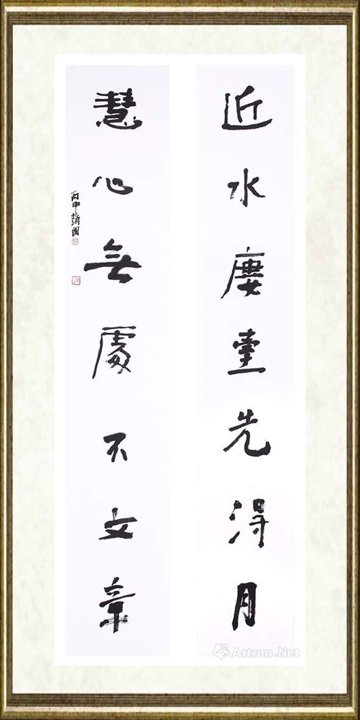 近水廔臺先淂月
慧心無處不文章
丙申
Artron.Net